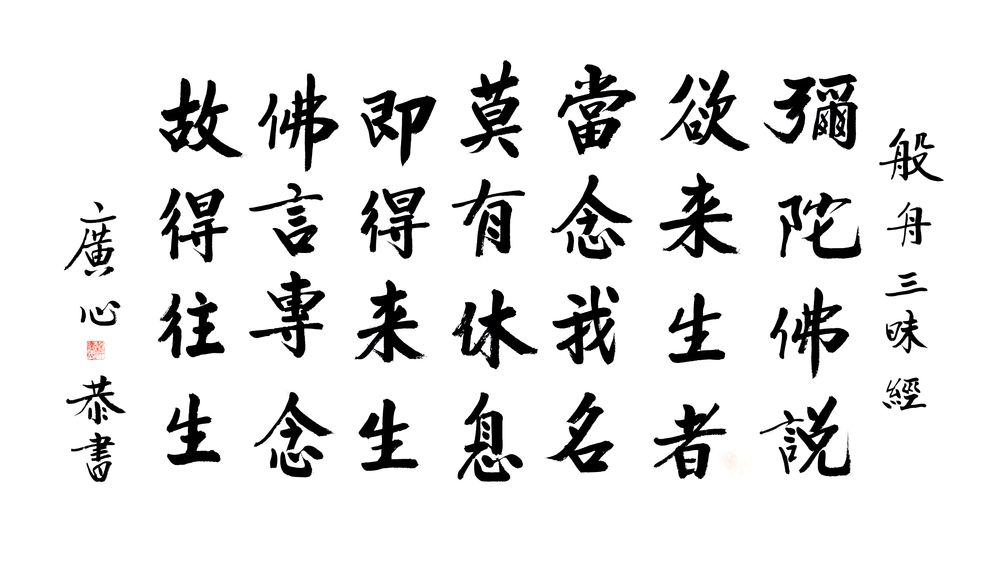 般舟三昧經
彌陀佛説
欲来生者
當念我名
莫有休息
即得来生
佛言專念
故得往生
廣心恭書